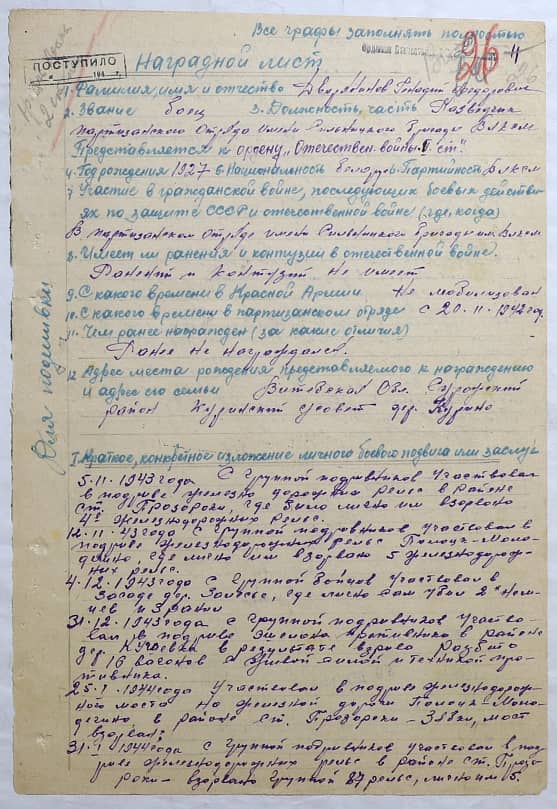 Все графы заполнять полностью
ПОСТУПИЛО
194 г.
26
4
Наградной лист
1. Фамилия, имя и отчество Дворянинов Генадий Федорович
2. Звание боец 3. Должность, часть Разведчик
партизанского отряда имени Сильницкого бригады ВЛКСМ
Представляется к ордену „Отечествен. войны II ст."
4. Год рождения 1927 5. Национальность белорус 6. Партийность ВЛКСМ
7. Участие в гражданской войне, последующих боевых действи-
ях по защите СССР и отечественной войне (где, когда)
В партизанском отряде имени Сильницкого бригады им. ВЛКСМ
8. Имеет ли ранения и контузии в отечественной войне.
Ранений и контузий не имеет
9. С какого времени в Красной Армии Не мобилизован
10. С какого времени в партизанском отряде с 20.11.1942 год.
11. Чем ранее награжден (за какие отличия)
Ранее не награждался.
12. Адрес места рождения представляемого к награждению
и адрес его семьи Витебская обл. Суражский
район Куринский с/совет дер. Курино
Для подшивки
I. Краткое, конкретное изложение личного боевого подвига или заслуг
5.11.1943 года с группой подрывников участвовал
в подрыве железно дорожных рельс в районе
ст. Прозороки, где было лично им взорвано
4 железнодорожных рельс.
12.11.43 года с группой подрывников участвовал в
подрыве железнодорожных рельс Полоцк-Моло-
дечно, где лично им взорвано 5 железнодорож-
ных рельс.
4.12.1943 года с группой бойцов участвовал в
засаде дер. где лично сам убил 2х нем-
цев и 3 ранил
31.12.1943 года с группой подрывников участво-
вал в подрыве эшелона противника в районе
дер. в результате взрыва разбито
16 вагонов с живой силой и техникой про-
тивника.
25.1.1944 года участвовал в подрыве железнодорож-
ного моста на железной дороги Полоцк-Моло-
дечно в районе ст. Прозороки - Зябки, мост
взорван.
31.1.1944 года с группой подрывников участвовал в под-
рыве железнодорожных рельс в районе ст. Прозо-
роки - взорвано группой 87 рельс, лично им 5